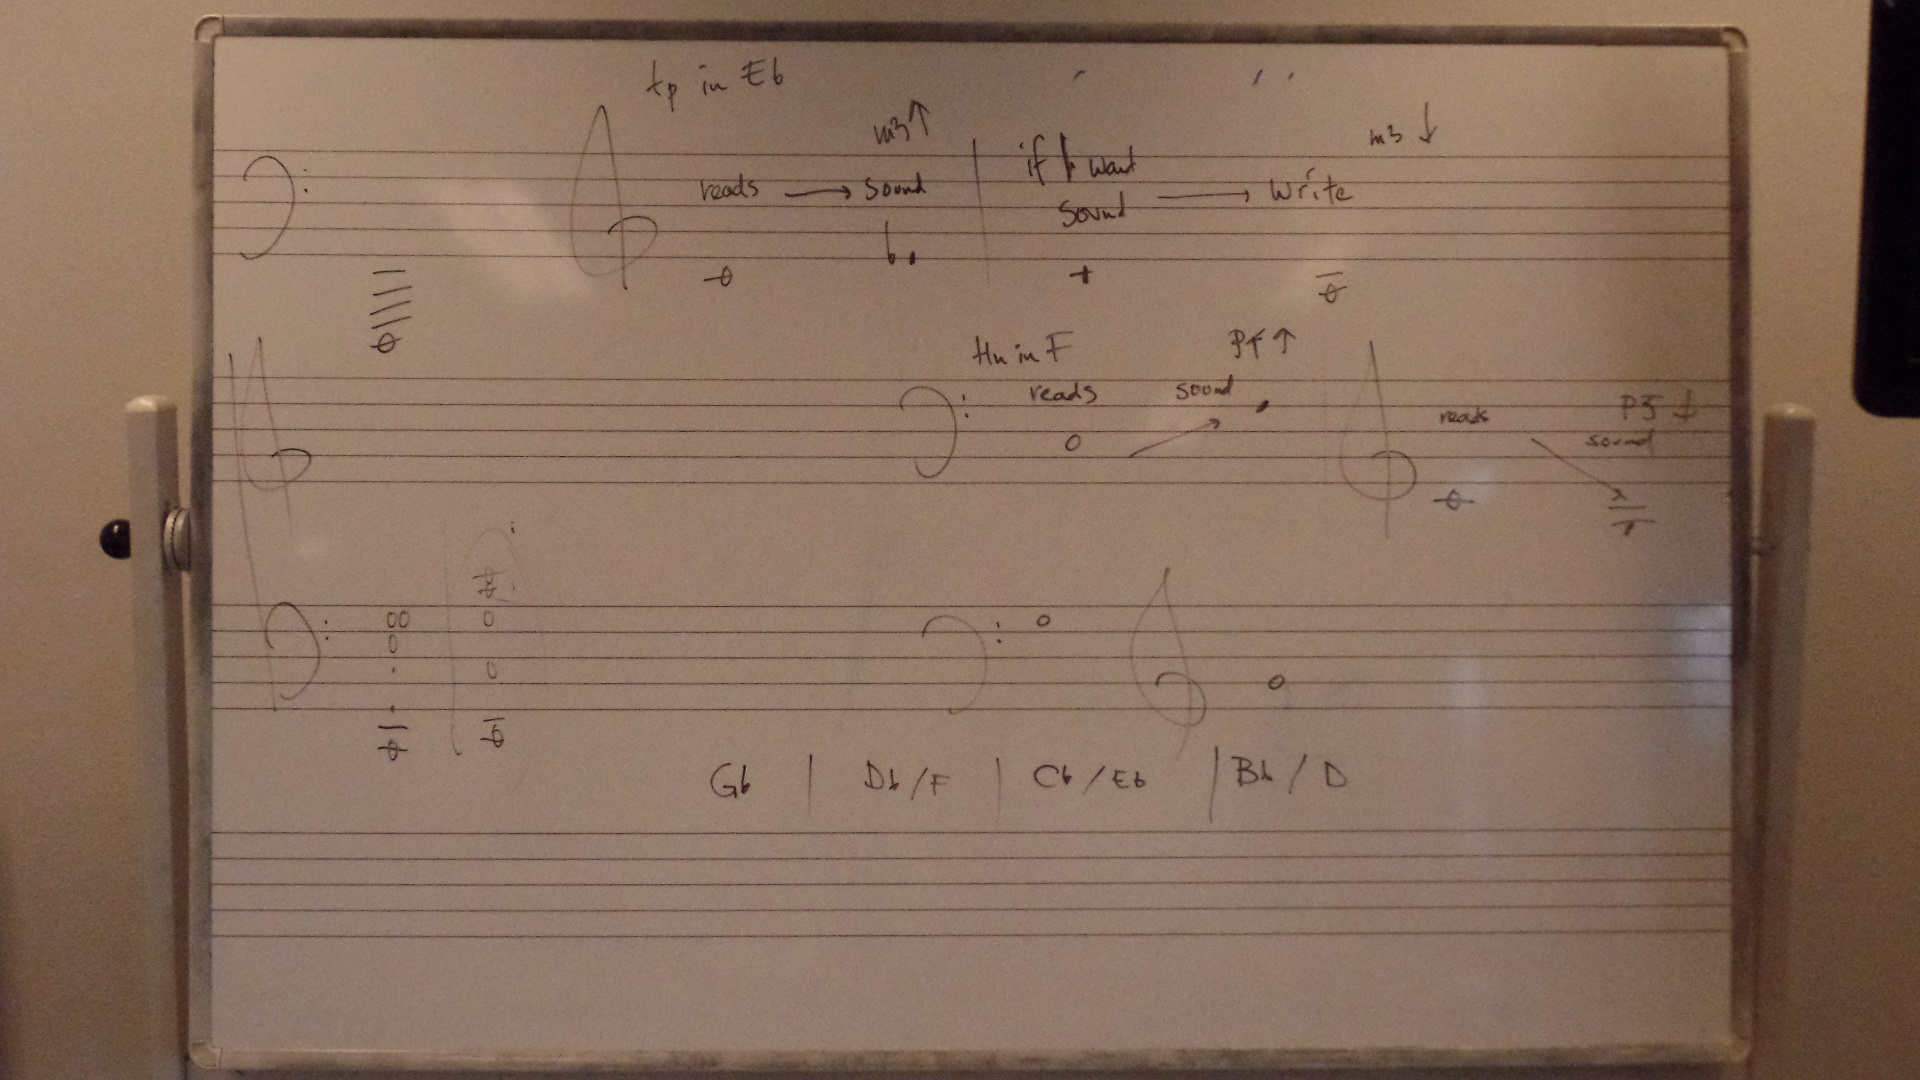 tp in Eb
m3↑
m3 ↓
reads → sound | if I want sound → write
Hn in F
P4 ↑
reads
sound
reads
P5 ↓
sound
Gb | Db/F | Cb/Eb | Bb/D